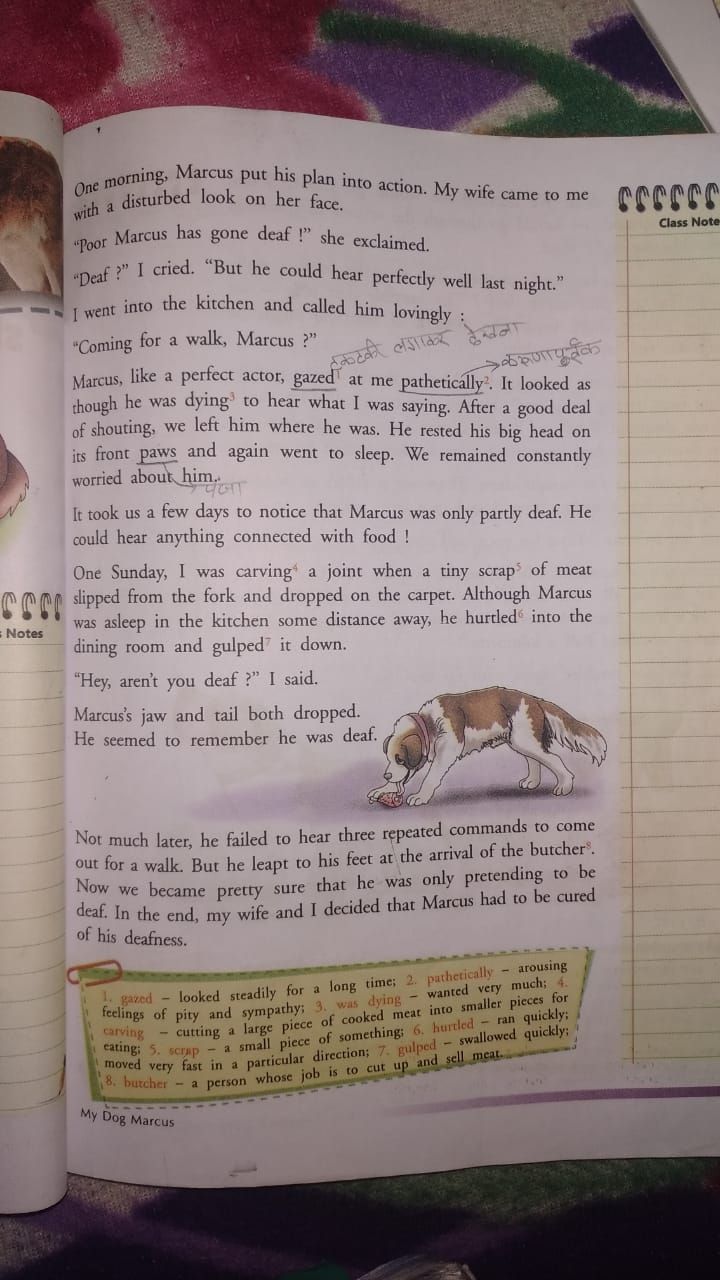 One morning, Marcus put his plan into action. My wife came to me
with a disturbed look on her face.
“Poor Marcus has gone deaf !” she exclaimed.
“Deaf ?” I cried. “But he could hear perfectly well last night.”
I went into the kitchen and called him lovingly :
“Coming for a walk, Marcus ?”
टकटकी लगाकर देखना
करुणापूर्वक
Marcus, like a perfect actor, gazed¹ at me pathetically². It looked as
though he was dying³ to hear what I was saying. After a good deal
of shouting, we left him where he was. He rested his big head on
its front paws and again went to sleep. We remained constantly
worried about him.
पंजा
It took us a few days to notice that Marcus was only partly deaf. He
could hear anything connected with food !
One Sunday, I was carving⁴ a joint when a tiny scrap⁵ of meat
slipped from the fork and dropped on the carpet. Although Marcus
was asleep in the kitchen some distance away, he hurtled⁶ into the
dining room and gulped⁷ it down.
“Hey, aren’t you deaf ?” I said.
Marcus’s jaw and tail both dropped.
He seemed to remember he was deaf.
Not much later, he failed to hear three repeated commands to come
out for a walk. But he leapt to his feet at the arrival of the butcher⁸.
Now we became pretty sure that he was only pretending to be
deaf. In the end, my wife and I decided that Marcus had to be cured
of his deafness.
1. gazed – looked steadily for a long time; 2. pathetically – arousing
feelings of pity and sympathy; 3. was dying – wanted very much; 4.
carving – cutting a large piece of cooked meat into smaller pieces for
eating; 5. scrap – a small piece of something; 6. hurtled – ran quickly;
moved very fast in a particular direction; 7. gulped – swallowed quickly;
8. butcher – a person whose job is to cut up and sell meat.
My Dog Marcus
Class Note
Notes